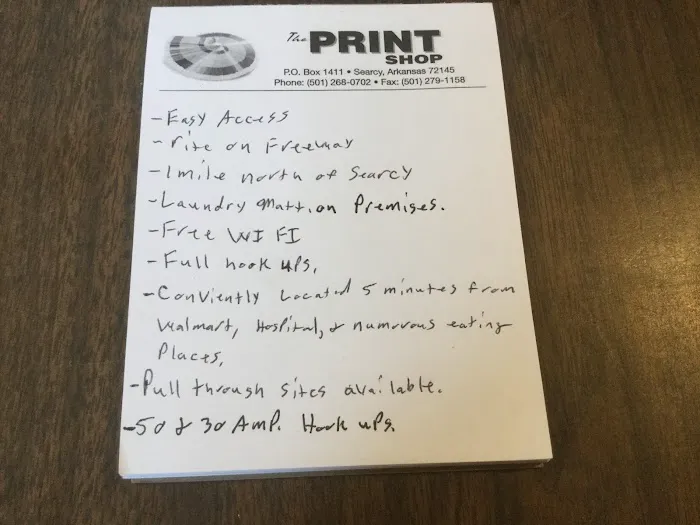 The PRINT
SHOP
P.O. Box 1411 • Searcy, Arkansas 72145
Phone: (501) 268-0702 • Fax: (501) 279-1158
- Easy Access
- rite on Freeway
- 1 mile north of Searcy
- Laundry Matt, on Premises.
- Free WI FI
- Full hook ups,
- Conviently Located 5 minutes from
Walmart, Hospital, & numorous eating
Places,
- Pull through sites available.
- 50 & 30 AMP. Hook ups.